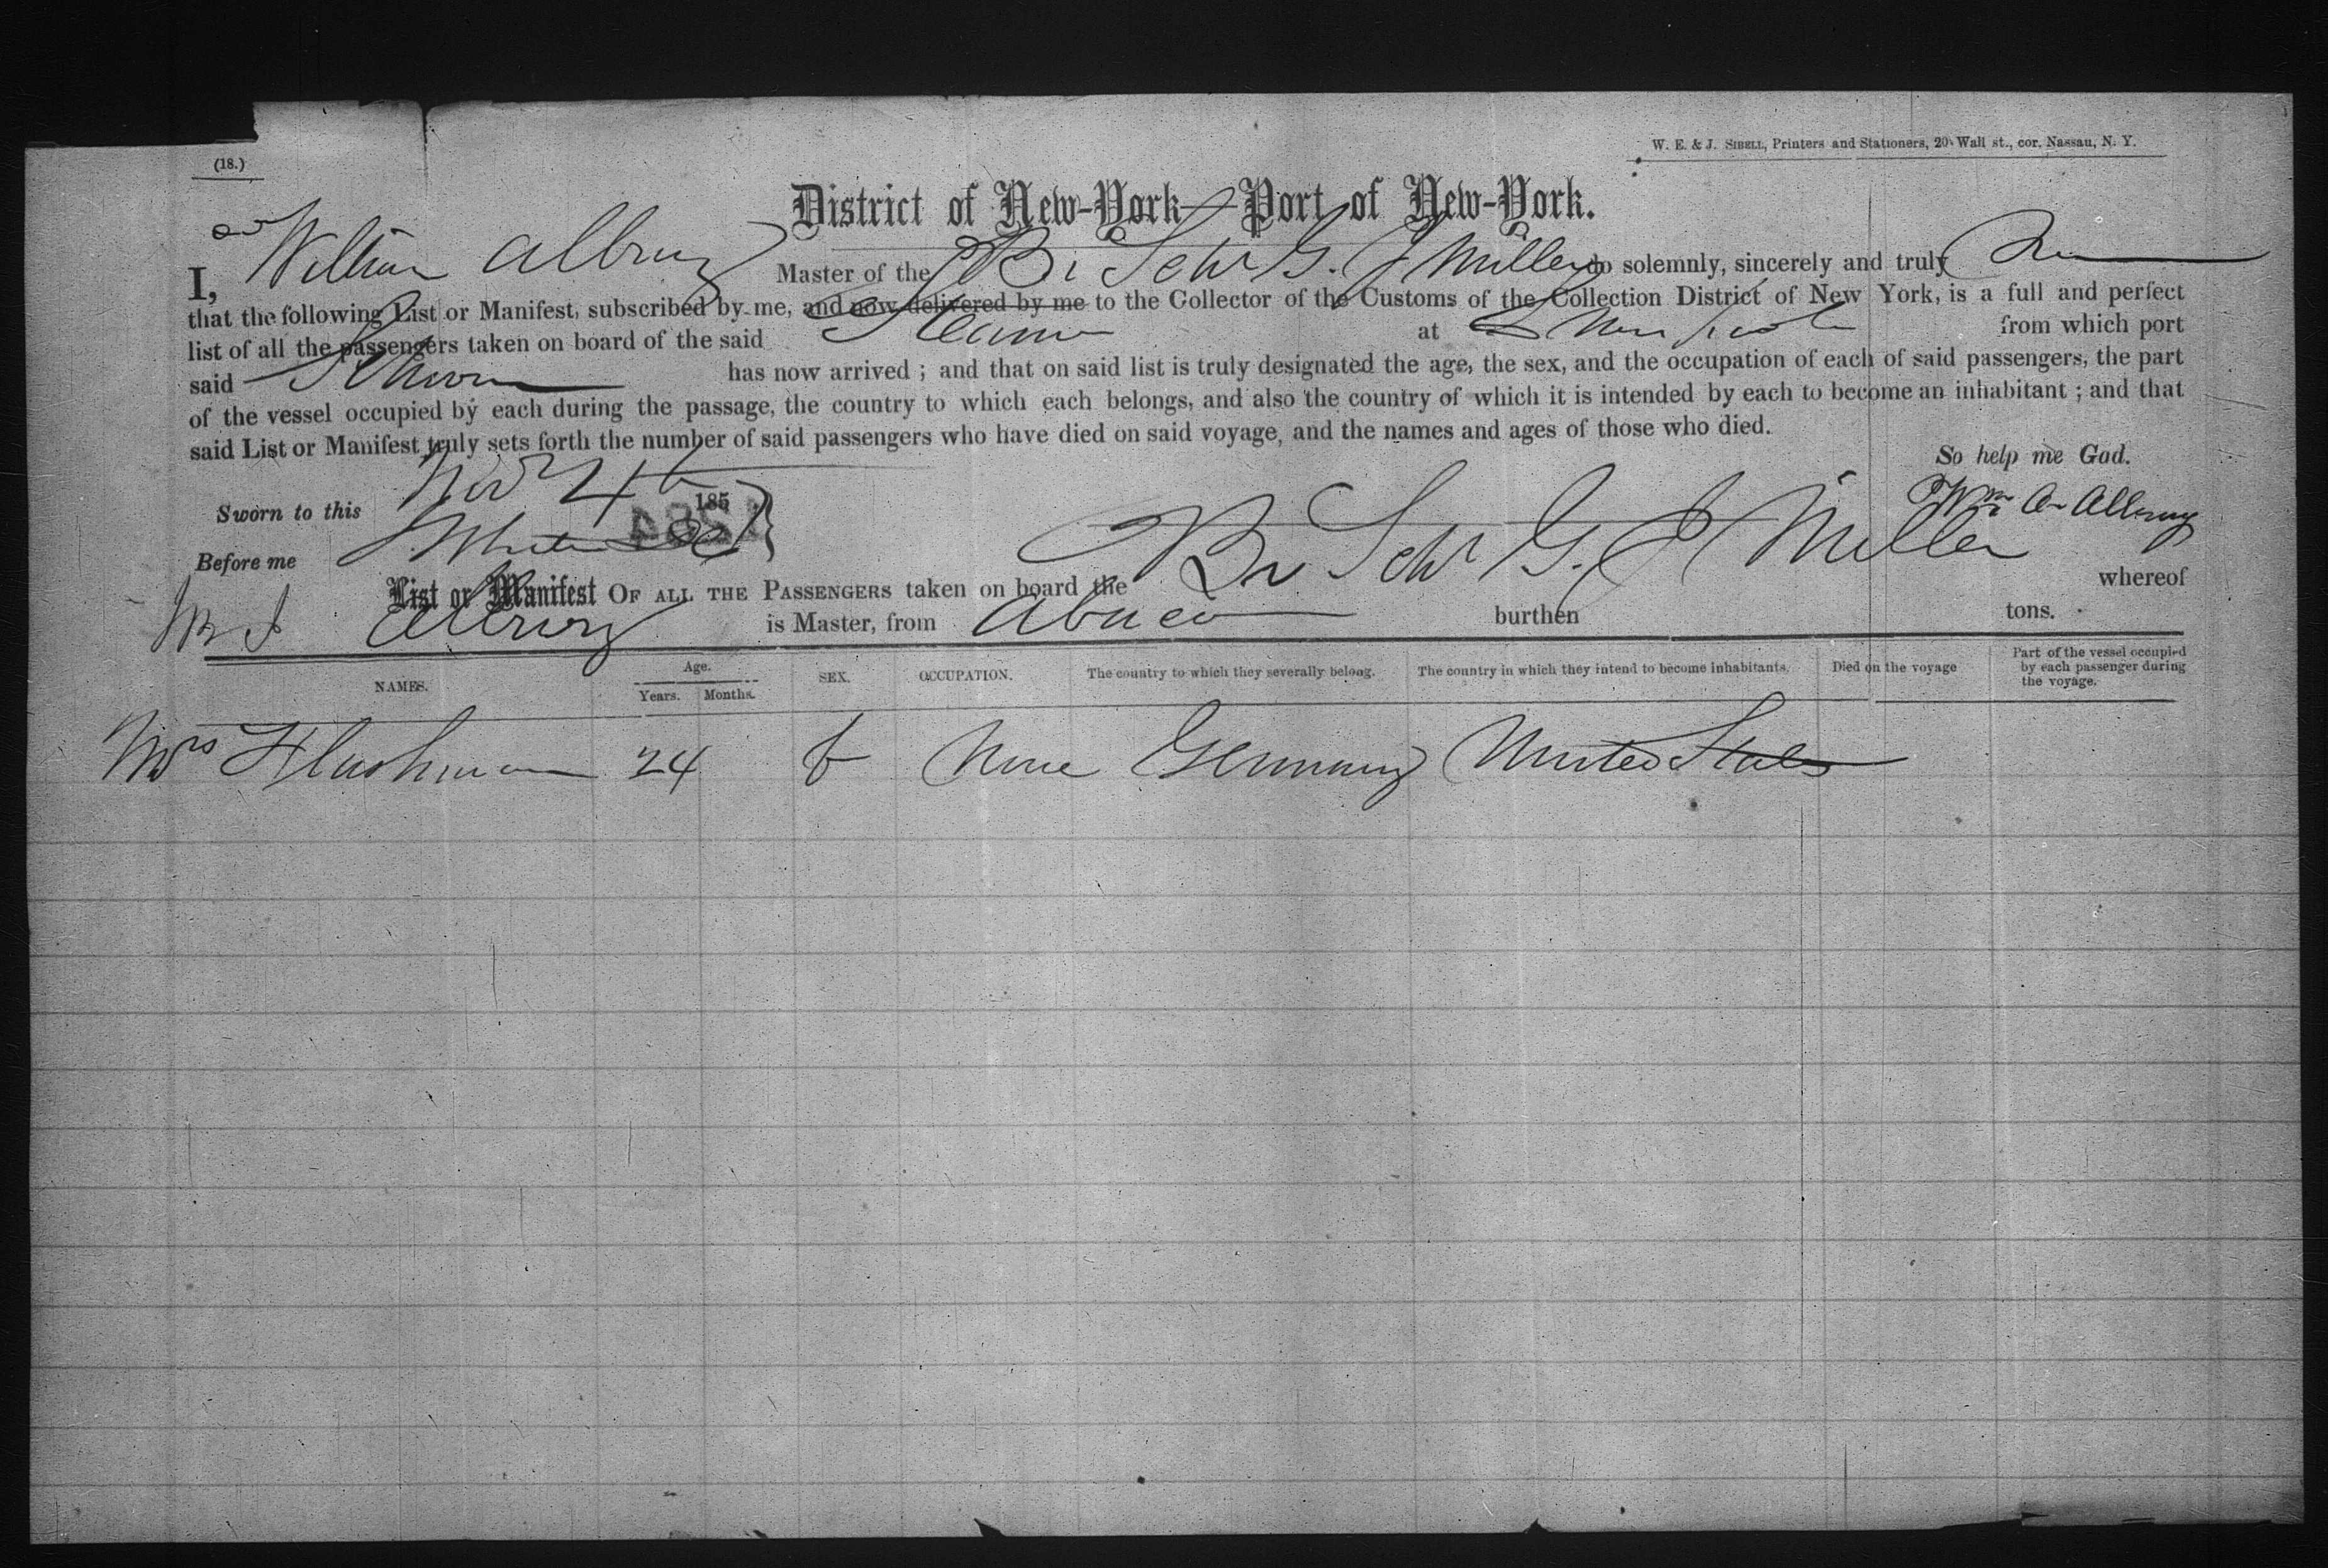 (18.)
W. E. & J. SIBELL, Printers and Stationers, 20 Wall st., cor. Nassau, N. Y.
District of New-York—Port of New-York.
I, William Albury Master of the Br Schr G. J Miller do solemnly, sincerely and truly
that the following List or Manifest, subscribed by me, and now delivered by me to the Collector of the Customs of the Collection District of New York, is a full and perfect
list of all the passengers taken on board of the said at from which port
said has now arrived ; and that on said list is truly designated the age, the sex, and the occupation of each of said passengers, the part
of the vessel occupied by each during the passage, the country to which each belongs, and also the country of which it is intended by each to become an inhabitant ; and that
said List or Manifest truly sets forth the number of said passengers who have died on said voyage, and the names and ages of those who died.
So help me God.
Sworn to this Nov 4th 185
Wm A Albury
Before me
List or Manifest OF ALL THE PASSENGERS taken on board the Br Schr G. J Miller whereof
Albury is Master, from Abaco burthen tons.
NAMES. Age. Years. Months. SEX. OCCUPATION. The country to which they severally belong. The country in which they intend to become inhabitants. Died on the voyage Part of the vessel occupied by each passenger during the voyage.
Mrs 24 f None Germany United States